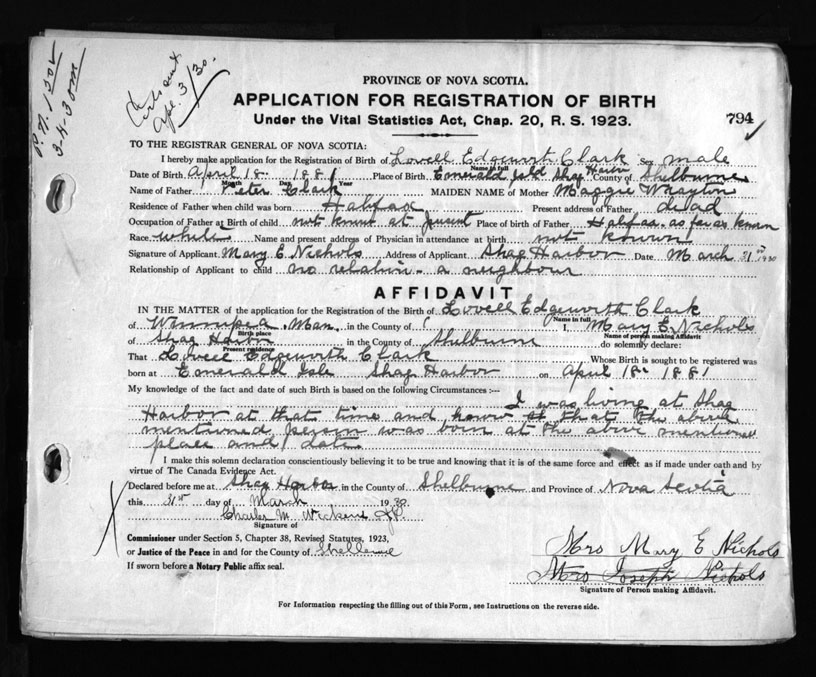 P.N. 1302
3-4-30
Cert. sent
Apr. 3/30.
PROVINCE OF NOVA SCOTIA.
APPLICATION FOR REGISTRATION OF BIRTH
Under the Vital Statistics Act, Chap. 20, R. S. 1923.
794
TO THE REGISTRAR GENERAL OF NOVA SCOTIA:
I hereby make application for the Registration of Birth of Lowell Edgeworth Clark Sex male
Name in full
Date of Birth April 18 - 1881 Place of Birth Emerald Isle Shag Harbor County of Shelburne
Month Day Year
Name of Father Peter Clark MAIDEN NAME of Mother Maggie Wrayton
Residence of Father when child was born Halifax Present address of Father dead
Occupation of Father at Birth of child not know at present Place of birth of Father Halifax as far as known
Race white Name and present address of Physician in attendance at birth not known
Signature of Applicant Mary E Nichols Address of Applicant Shag Harbor Date March 31st 1930
Relationship of Applicant to child no relation - a neighbour
AFFIDAVIT
IN THE MATTER of the application for the Registration of the Birth of Lovell Edgeworth Clark
Name in full
of Winnipeg Man. in the County of I, Mary E. Nichols
Birth place Name of person making Affidavit
of Shag Harbor in the County of Shelburne do solemnly declare:
Present residence
That Lovell Edgeworth Clark Whose Birth is sought to be registered was
born at Emerald Isle Shag Harbor on April 18 - 1881
My knowledge of the fact and date of such Birth is based on the following Circumstances :—
I was living at Shag
Harbor at that time and know that the above
mentioned person was born at the above mentioned
place and date
I make this solemn declaration conscientiously believing it to be true and knowing that it is of the same force and effect as if made under oath and by
virtue of The Canada Evidence Act.
Declared before me at Shag Harbor in the County of Shelburne and Province of Nova Scotia
this 31st day of March 1930.
Charles M. Nickerson J.P.
Signature of
Commissioner under Section 5, Chapter 38, Revised Statutes, 1923,
or Justice of the Peace in and for the County of Shelburne
If sworn before a Notary Public affix seal.
Mrs Mary E Nichols
Mrs Joseph Nichols
Signature of Person making Affidavit.
For Information respecting the filling out of this Form, see Instructions on the reverse side.